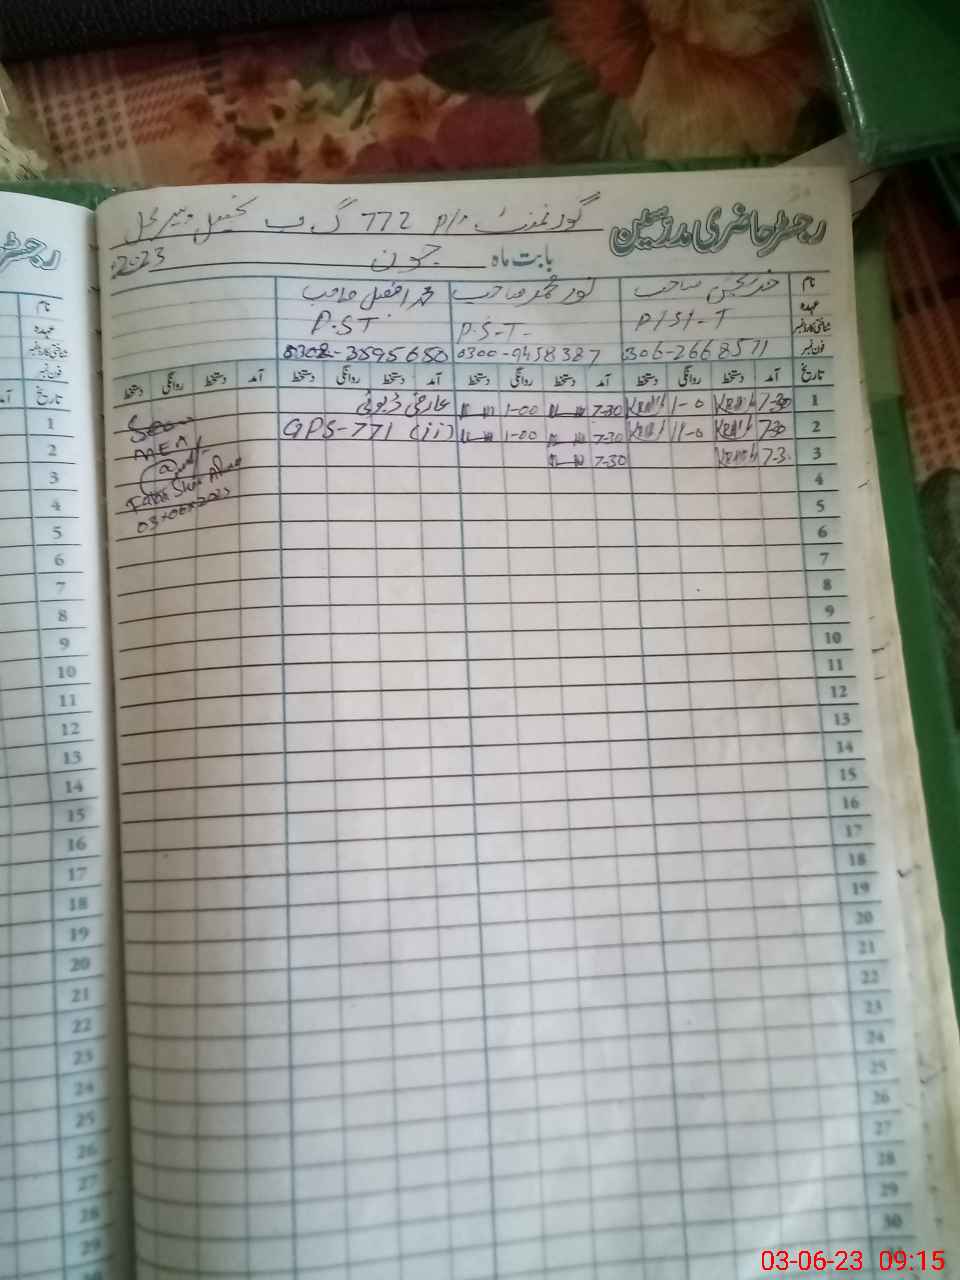 رجسٹر حاضری مدرسین گورنمنٹ p/s 772 گ ب تحصیل پیر محل
بابت ماہ جون 2023
نام خدا بخش صاحب نور محمد صاحب محمد افضل صاحب
عہدہ P/S/-T P.S-T- P.ST
شناختی کارڈ نمبر
فون نمبر 306-2668571 0300-9458387 0308-3595650
تاریخ آمد دستخط روانگی دستخط آمد دستخط روانگی دستخط آمد دستخط روانگی دستخط آمد دستخط روانگی دستخط
1 7-30 1-0 7-30 1-00 عارضی ڈیوٹی
2 7-30 11-0 7-30 1-00 GPS-771 (ii)
3 7-3 7-30
4
5
6
7
8
9
10
11
12
13
14
15
16
17
18
19
20
21
22
23
24
25
26
27
28
29
30
Seen
MEA
03-06-2023
رجسٹر
نام
عہدہ
شناختی کارڈ نمبر
فون نمبر
تاریخ آمد
1
2
3
4
5
6
7
8
9
10
11
12
13
14
15
16
17
18
19
20
21
22
23
24
25
26
27
28
29
30
03-06-23 09:15